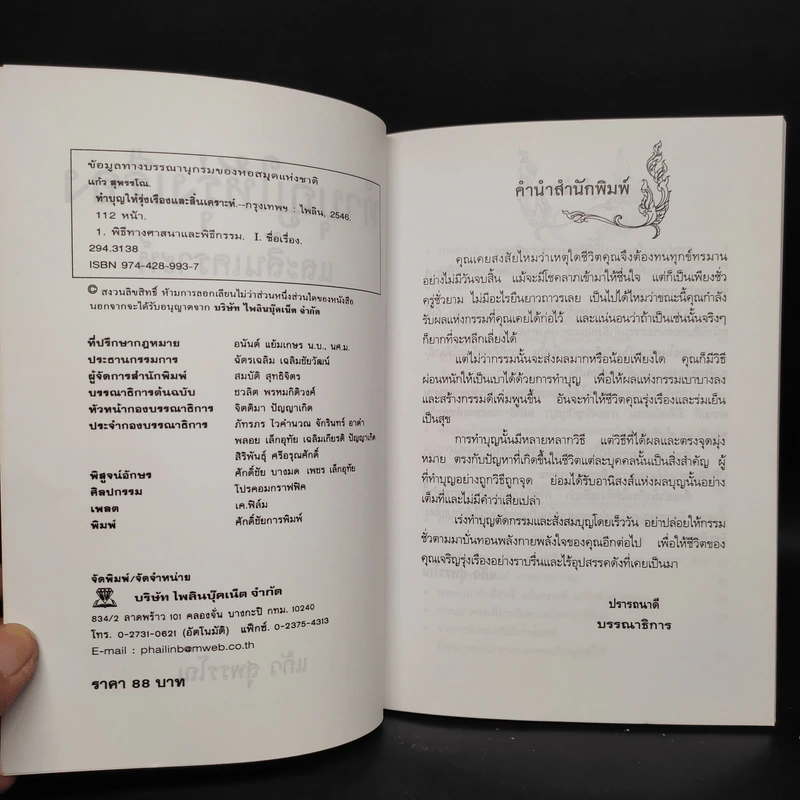 ข้อมูลทางบรรณานุกรมของหอสมุดแห่งชาติ
แก้ว สุพรรโณ.
ทำบุญให้รุ่งเรืองและสิ้นเคราะห์.--กรุงเทพฯ : ไพลิน, 2546.
112 หน้า.
1. พิธีทางศาสนาและพิธีกรรม. I. ชื่อเรื่อง.
294.3138
ISBN 974-428-993-7
© สงวนลิขสิทธิ์ ห้ามการลอกเลียนไม่ว่าส่วนหนึ่งส่วนใดของหนังสือ
นอกจากจะได้รับอนุญาตจาก บริษัท ไพลินบุ๊คเน็ต จำกัด
ที่ปรึกษากฎหมาย อนันต์ แย้มเกษร น.บ., นศ.ม.
ประธานกรรมการ ฉัตรเฉลิม เฉลิมชัยวัฒน์
ผู้จัดการสำนักพิมพ์ สมบัติ สุทธิจิตร
บรรณาธิการต้นฉบับ ชวลิต พรหมกิติวงศ์
หัวหน้ากองบรรณาธิการ จิตติมา ปัญญาเกิด
ประจำกองบรรณาธิการ ภัทรภร ไวคำนวณ จักรินทร์ อาดำ
พลอย เล็กอุทัย เฉลิมเกียรติ ปัญญาเกิด
สิริพันธุ์ ศรีอรุณศักดิ์
พิสูจน์อักษร ศักดิ์ชัย บางมด เพชร เล็กอุทัย
ศิลปกรรม โปรคอมกราฟฟิค
เพลต เค.ฟิล์ม
พิมพ์ ศักดิ์ชัยการพิมพ์
จัดพิมพ์/จัดจำหน่าย
บริษัท ไพลินบุ๊คเน็ต จำกัด
834/2 ลาดพร้าว 101 คลองจั่น บางกะปิ กทม. 10240
โทร. 0-2731-0621 (อัตโนมัติ) แฟ็กซ์. 0-2375-4313
E-mail : phailinb@mweb.co.th
ราคา 88 บาท
คำนำสำนักพิมพ์
คุณเคยสงสัยไหมว่าเหตุใดชีวิตคุณจึงต้องทนทุกข์ทรมาน
อย่างไม่มีวันจบสิ้น แม้จะมีโชคลาภเข้ามาให้ชื่นใจ แต่ก็เป็นเพียงชั่ว
ครู่ชั่วยาม ไม่มีอะไรยืนยาวถาวรเลย เป็นไปได้ไหมว่าขณะนี้คุณกำลัง
รับผลแห่งกรรมที่คุณเคยได้ก่อไว้ และแน่นอนว่าถ้าเป็นเช่นนั้นจริงๆ
ก็ยากที่จะหลีกเลี่ยงได้
แต่ไม่ว่ากรรมนั้นจะส่งผลมากหรือน้อยเพียงใด คุณก็มีวิธี
ผ่อนหนักให้เป็นเบาได้ด้วยการทำบุญ เพื่อให้ผลแห่งกรรมเบาบางลง
และสร้างกรรมดีเพิ่มพูนขึ้น อันจะทำให้ชีวิตคุณรุ่งเรืองและร่มเย็น
เป็นสุข
การทำบุญนั้นมีหลายหลากวิธี แต่วิธีที่ได้ผลและตรงจุดมุ่ง
หมาย ตรงกับปัญหาที่เกิดขึ้นในชีวิตแต่ละบุคคลนั้นเป็นสิ่งสำคัญ ผู้
ที่ทำบุญอย่างถูกวิธีถูกจุด ย่อมได้รับอานิสงส์แห่งผลบุญนั้นอย่าง
เต็มที่และไม่มีคำว่าเสียเปล่า
เร่งทำบุญตัดกรรมและสั่งสมบุญโดยเร็ววัน อย่าปล่อยให้กรรม
ชั่วตามมาบั่นทอนพลังกายพลังใจของคุณอีกต่อไป เพื่อให้ชีวิตของ
คุณเจริญรุ่งเรืองอย่างราบรื่นและไร้อุปสรรคดังที่เคยเป็นมา
ปรารถนาดี
บรรณาธิการ